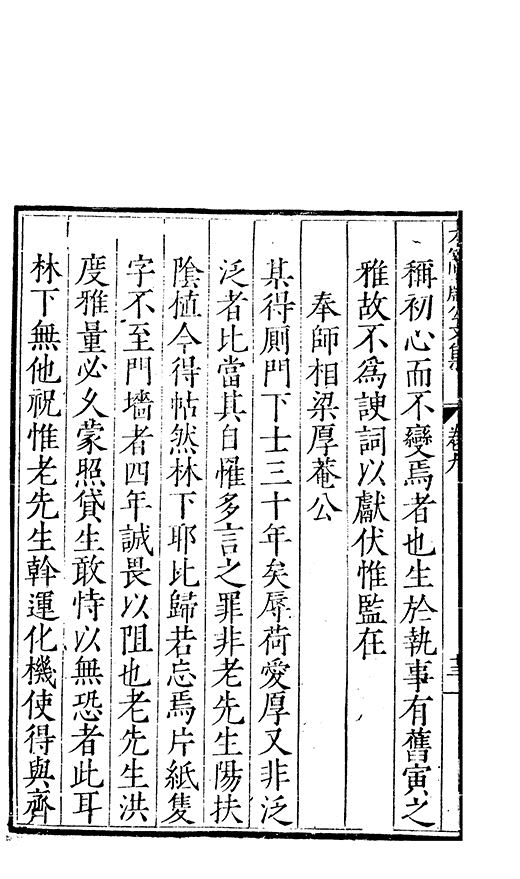 稱初心而不變焉者也生於執事有舊寅之
雅故不為諛詞以獻伏惟監在
奉師相梁厚菴公
某得厠門下士三十年矣辱荷愛厚又非泛
泛者比當其自懼多言之罪非老先生陽扶
陰植今得帖然林下耶比歸若忘焉片紙隻
字不至門墻者四年誠畏以阻也老先生洪
度雅量必久蒙照貸生敢恃以無恐者此耳
林下無他祝惟老先生斡運化機使得與齊
文集 卷九
十三